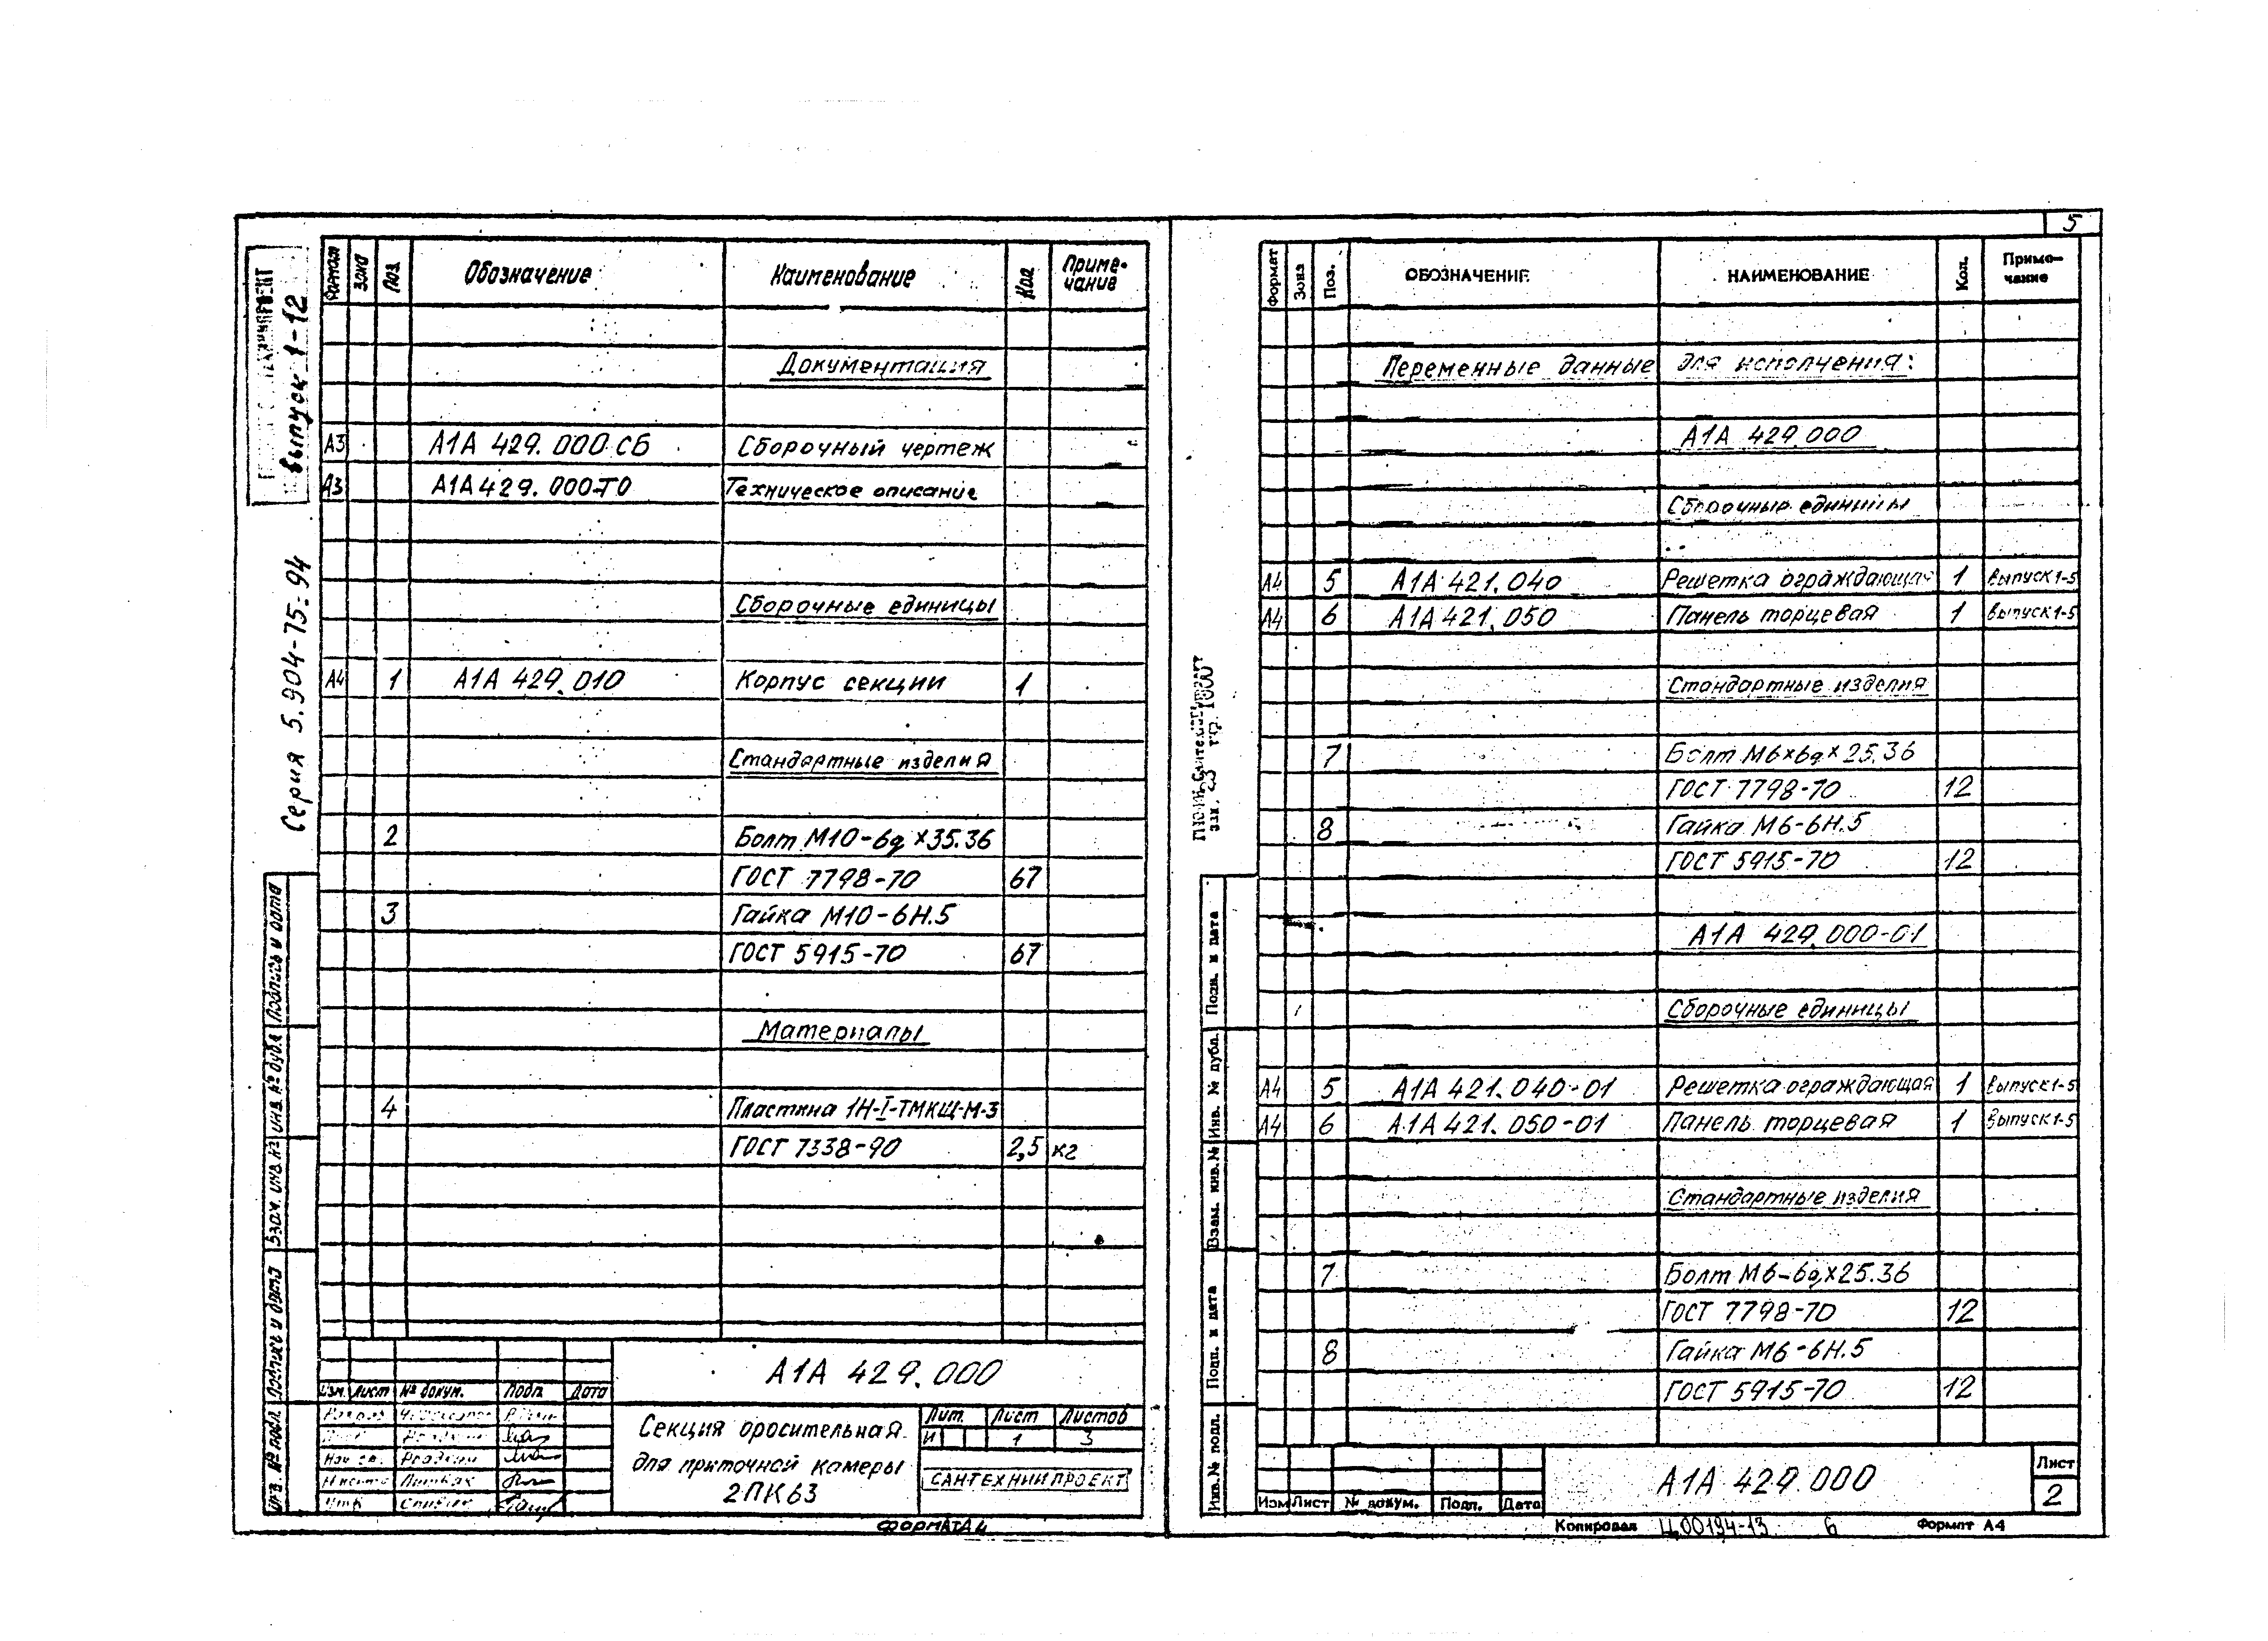 5
Выпуск 1-12
Серия 5.904-75.94
Формат Зона Поз. Обозначение Наименование Кол Приме-
чание
Документация
А3 А1А 429.000 СБ Сборочный чертеж
А3 А1А 429.000-ТО Техническое описание
Сборочные единицы
А4 1 А1А 429.010 Корпус секции 1
Стандартные изделия
2 Болт М10-6g×35.36
ГОСТ 7798-70 67
3 Гайка М10-6Н.5
ГОСТ 5915-70 67
Материалы
4 Пластина 1Н-I-ТМКЩ-М-3
ГОСТ 7338-90 2,5 кг
Инв. № подл. Подпись и дата Взам. инв. № Инв. № дубл. Подпись и дата
А1А 429.000
Изм. Лист № докум. Подп. Дата
Секция оросительная
для приточной камеры
2ПК63
Лит. Лист Листов
И 1 3
САНТЕХНИИПРОЕКТ
Формат А4
Формат Зона Поз. ОБОЗНАЧЕНИЕ НАИМЕНОВАНИЕ Кол. Приме-
чание
Переменные данные для исполнения:
А1А 429.000
Сборочные единицы
А4 5 А1А 421.040 Решетка ограждающая 1 Выпуск 1-5
А4 6 А1А 421.050 Панель торцевая 1 Выпуск 1-5
Стандартные изделия
7 Болт М6×6g×25.36
ГОСТ 7798-70 12
8 Гайка М6-6Н.5
ГОСТ 5915-70 12
А1А 429.000-01
Сборочные единицы
А4 5 А1А 421.040-01 Решетка ограждающая 1 Выпуск 1-5
А4 6 А1А 421.050-01 Панель торцевая 1 Выпуск 1-5
Стандартные изделия
7 Болт М6-6g×25.36
ГОСТ 7798-70 12
8 Гайка М6-6Н.5
ГОСТ 5915-70 12
Инв. № подл. Подп. и дата Взам. инв. № Инв. № дубл. Подп. и дата
Изм Лист № докум. Подп. Дата
А1А 429.000
Лист
2
Копировал Ц00194-13 6 Формат А4